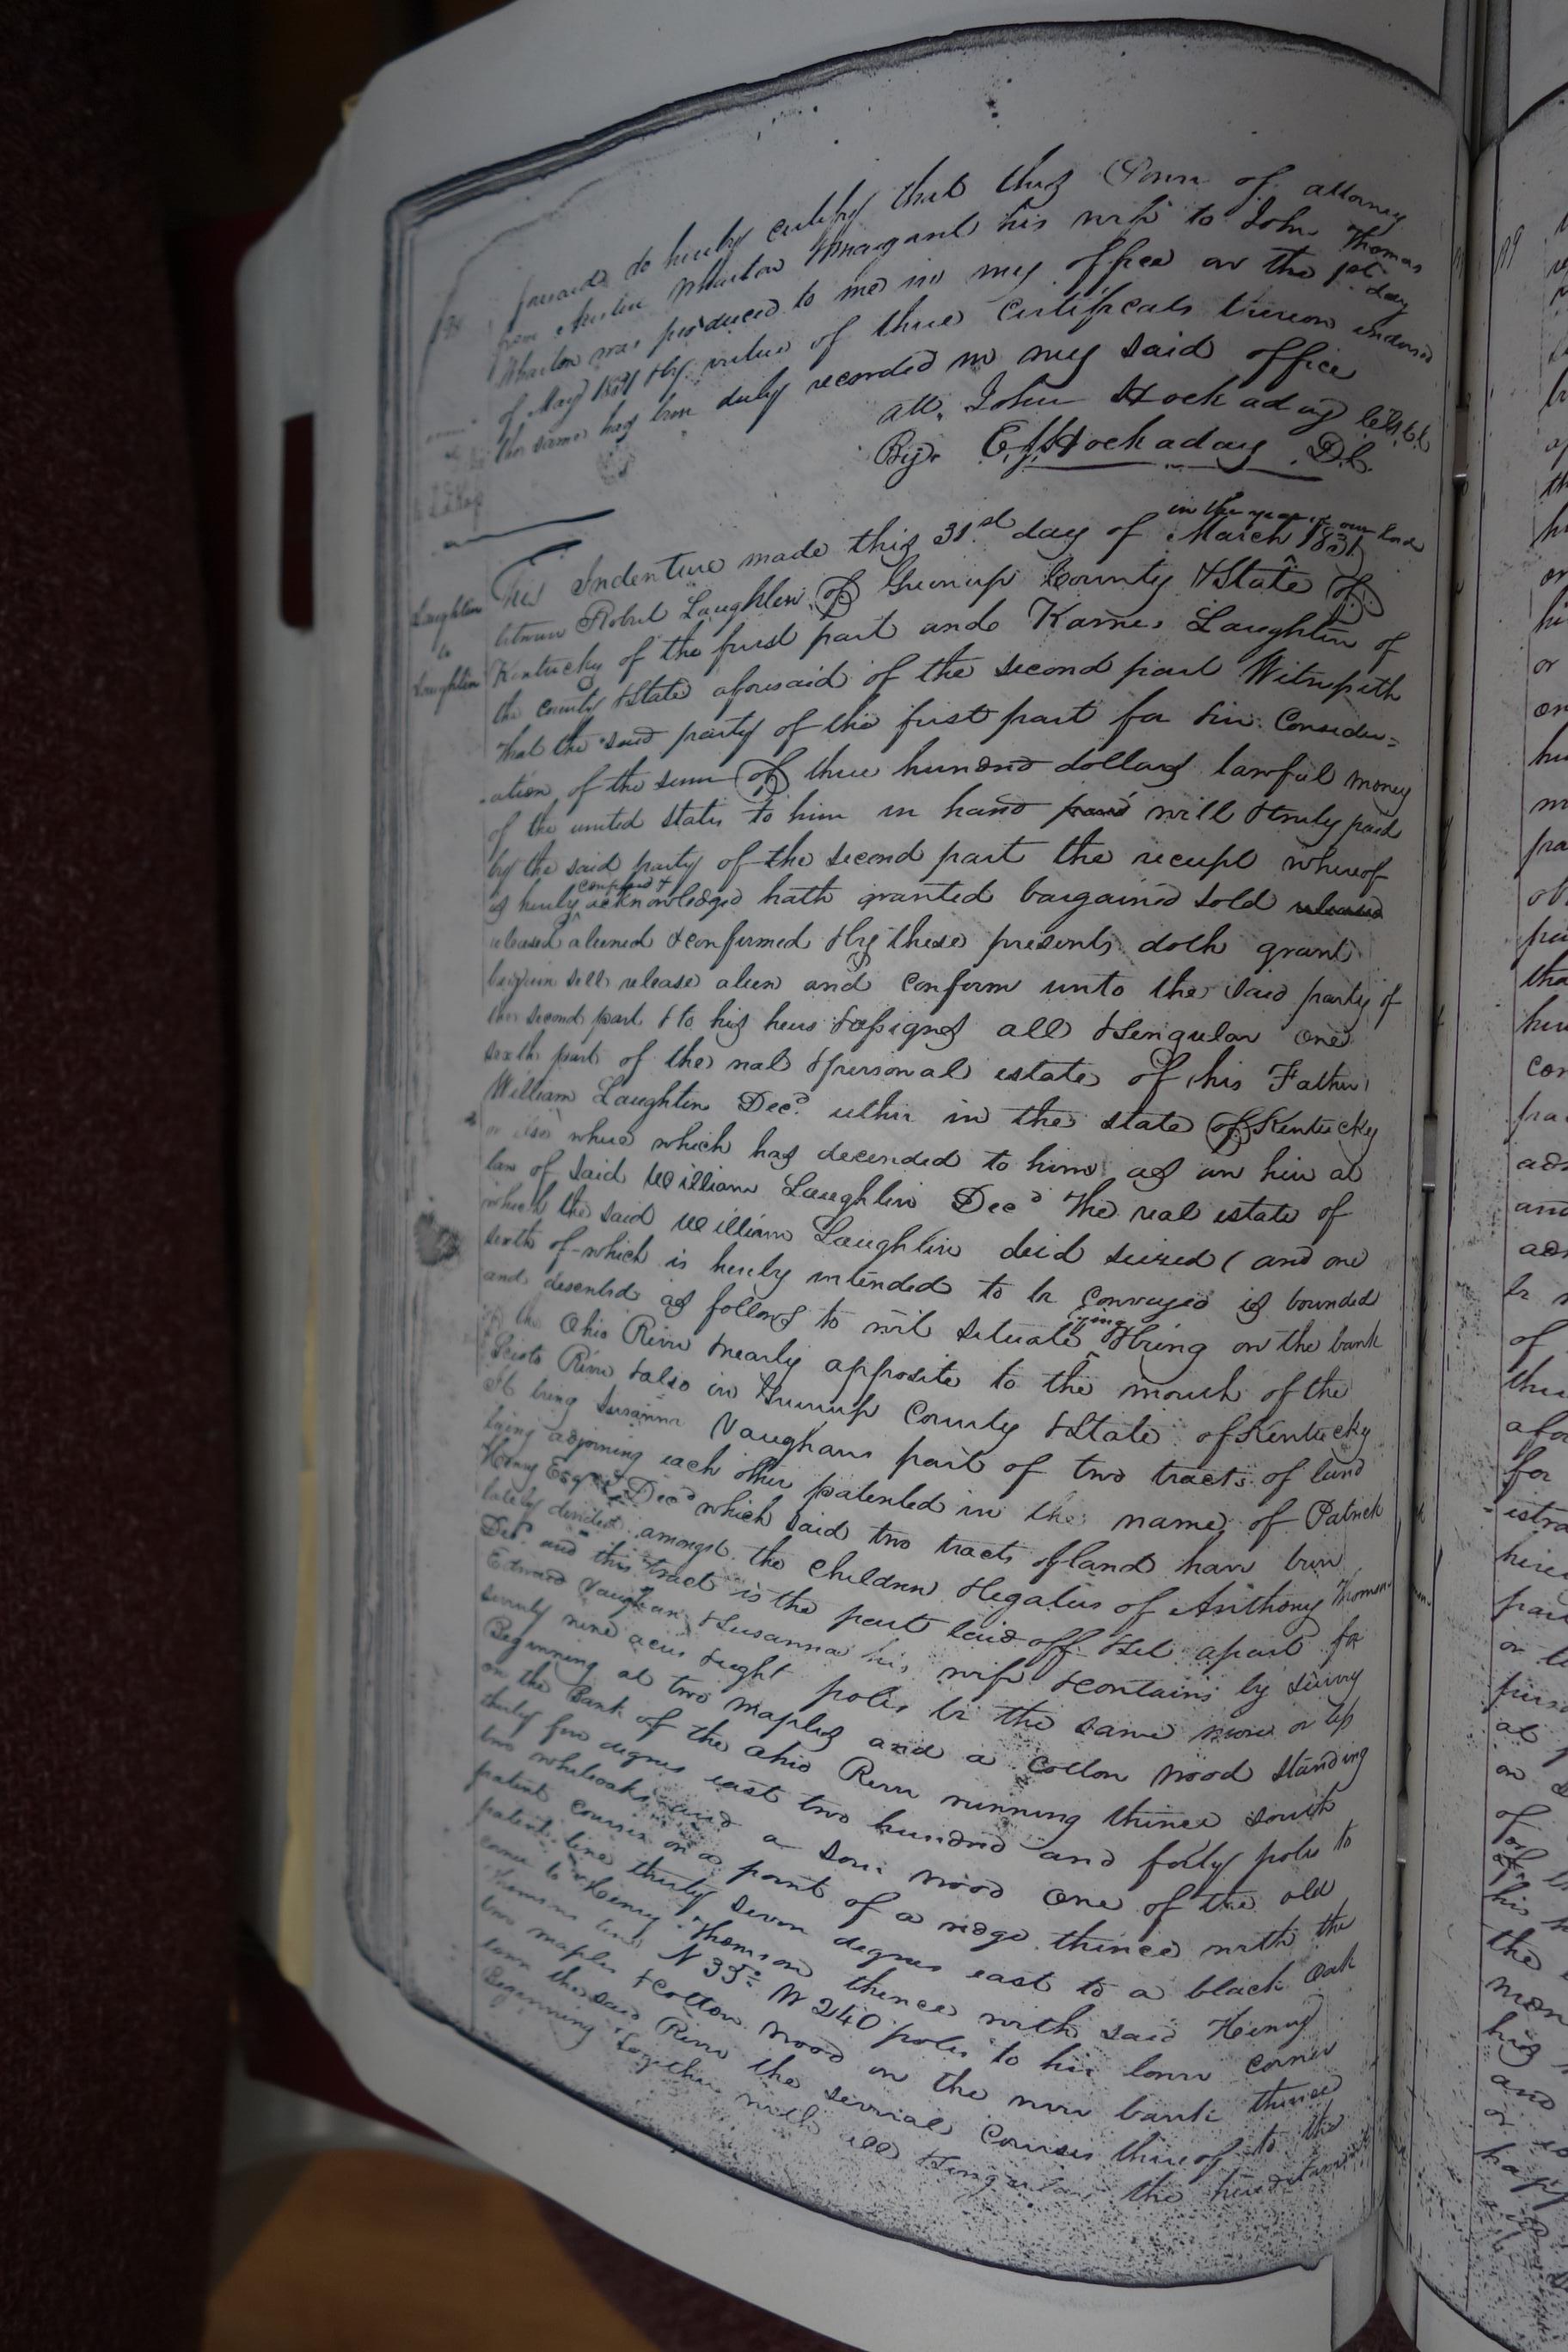 198
foresaid do hereby certify that this Power of attorney
from Austin Wharton & Margaret his wife to John Thomas
Wharton was produced to me in my office on the 1st day
of May 1831 & by virtue of three Certificats thereon endorsed
the same has been duly recorded in my said office
att. John Hockaday
By. Hockaday D.C.
Laughlin
to
Laughlin
in the year of our Lord
This Indenture made this 31.st day of March 1831
between Robert Laughlin of Greenup County & State of
Kentucky of the first part and Laughlin of
the county & State aforesaid of the second part Witnesseth
that the said party of the first part for & in Consider=
ation of the sum of three hundred dollars lawful money
of the united States to him in hand paid will & truly paid
by the said party of the second part the receipt whereof
confessed &
is hereby acknowledged hath granted bargained sold released
released aliened & confirmed & by these presents doth grant
bargain sell release alien and Confirm unto the said party of
the second part & to his heirs & assigns all & singular one
sixth part of the real & personal estate of his Father
William Laughlin Decd. either in the state of Kentucky
or else where which has decended to him as an heir at
law of said William Laughlin Decd The real estate of
which the said William Laughlin deid seized (and one
sixth of which is hereby intended to be Conveyed is bounded
and described as follows to wit situate lying & being on the bank
of the Ohio River & nearly opposite to the mouth of the
Scioto River & also in Greenup County & State of Kentucky
It being Susanna Vaughans part of two tracts of land
lying adjoining each other patented in the name of Patrick
Henry Esqr Decd which said two tracts of land have been
lately divided amongst the Children & legatees of Anthony Thomson
Decd. and this tract is the part laid off & set apart for
Edward Vaughan & Susanna his wife & contains by survey
seventy nine acres & eight poles be the same more or less
Beginning at two maples and a Cotton wood standing
on the Bank of the ohio River running thence south
thirty five degrees east two hundred and forty poles to
two whiteoaks and a sour wood one of the old
patent courses on a point of a ridge thence with the
patent line thirty seven degrees east to a black oak
corner to Henry Thomson thence with said Henry
Thomsons line N 35° W 240 poles to his lower corner
two maples & Cotton wood on the river bank thence
down the said River the several Courses thereof to the
Beginning Together with all & singular the hereditaments